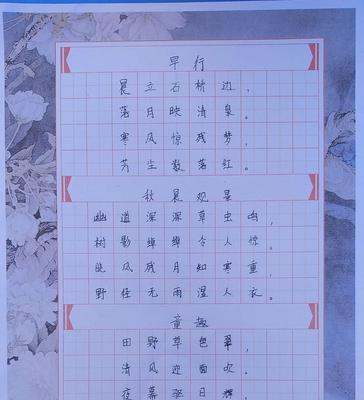 早行
晨立石桥边，
落月映清泉。
寒风惊残梦，
芳尘散落红。
秋晨观景
幽道深深草虫鸣，
树影绰绰令人惊。
晓风残月知寒重，
野径无雨湿人衣。
童趣
田野草色翠，
清风迎面吹。
夜幕驱日辉，